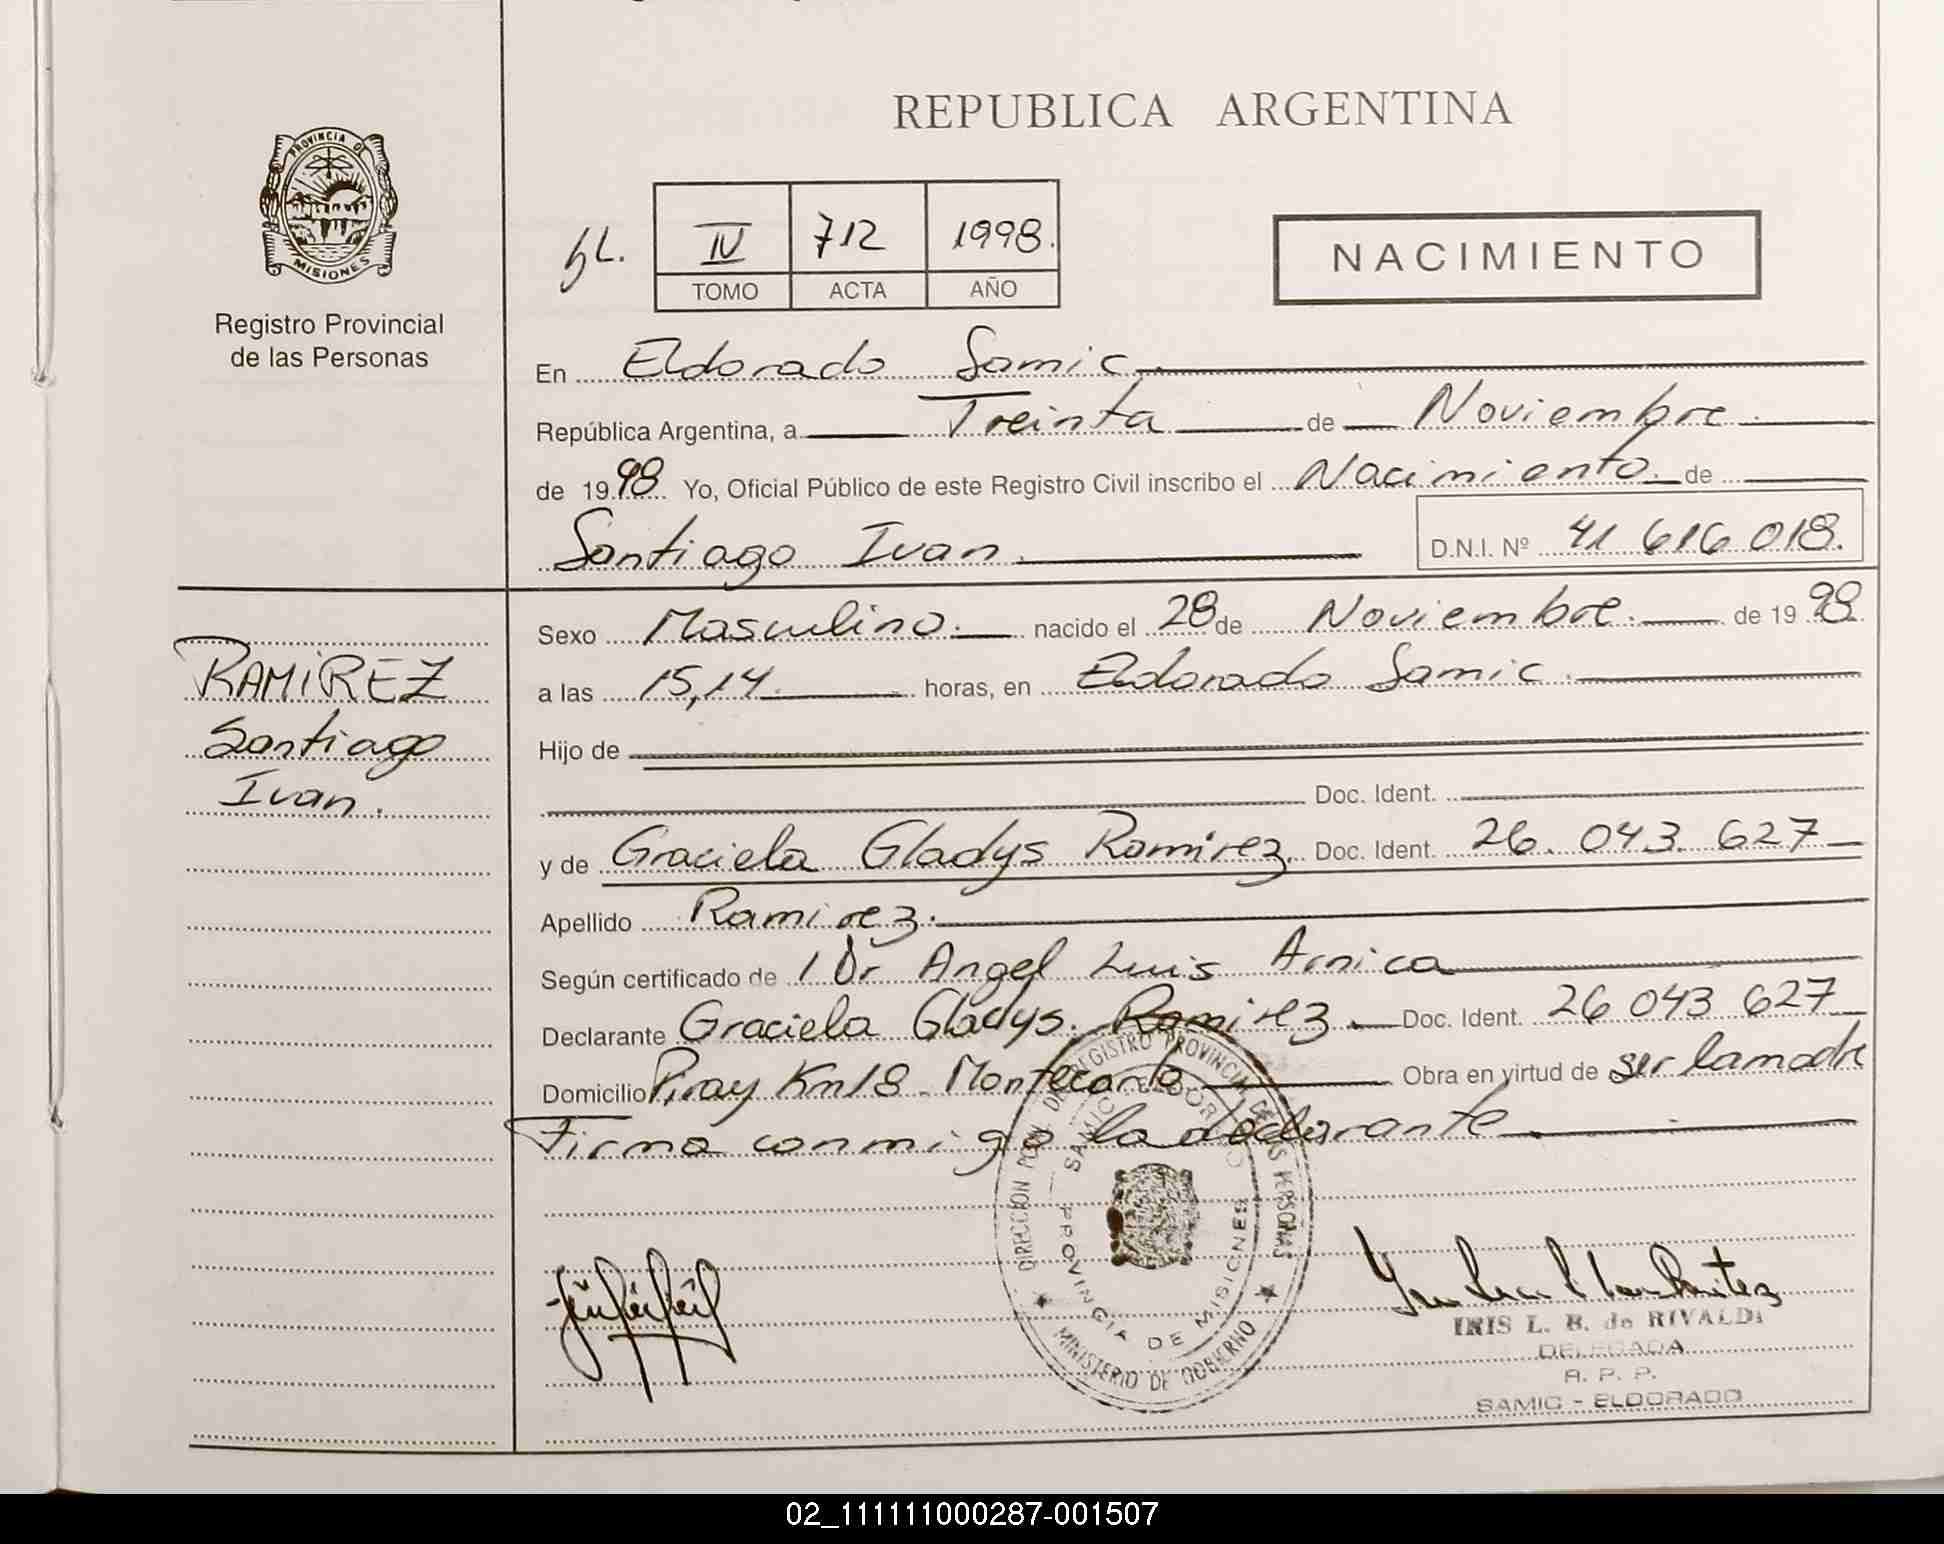 REPUBLICA ARGENTINA
PROVINCIA DE
MISIONES
Registro Provincial
de las Personas
IV 712 1998.
TOMO ACTA AÑO
NACIMIENTO
En Eldorado Samic.
República Argentina, a Treinta de Noviembre.
de 1998 Yo, Oficial Público de este Registro Civil inscribo el Nacimiento. de
Santiago Ivan.
D.N.I. Nº 41 616 018.
RAMIREZ
Santiago
Ivan.
Sexo Masculino. nacido el 28 de Noviembre. de 1998.
a las 15,14. horas, en Eldorado Samic.
Hijo de
Doc. Ident.
y de Graciela Gladys Ramirez. Doc. Ident. 26. 043. 627
Apellido Ramirez.
Según certificado de Dr Angel Luis Arnica
Declarante Graciela Gladys. Ramirez. Doc. Ident. 26 043 627
Domicilio Piray Km 18. Montecarlo Obra en virtud de ser la madre
Firma conmigo la declarante.
REGISTRO PROVINCIAL DE LAS PERSONAS
SAMIC - ELDORADO
PROVINCIA DE MISIONES
MINISTERIO DE GOBIERNO
IRIS L. B. de RIVALDI
DELEGADA
R. P. P.
SAMIC - ELDORADO
02_111111000287-001507